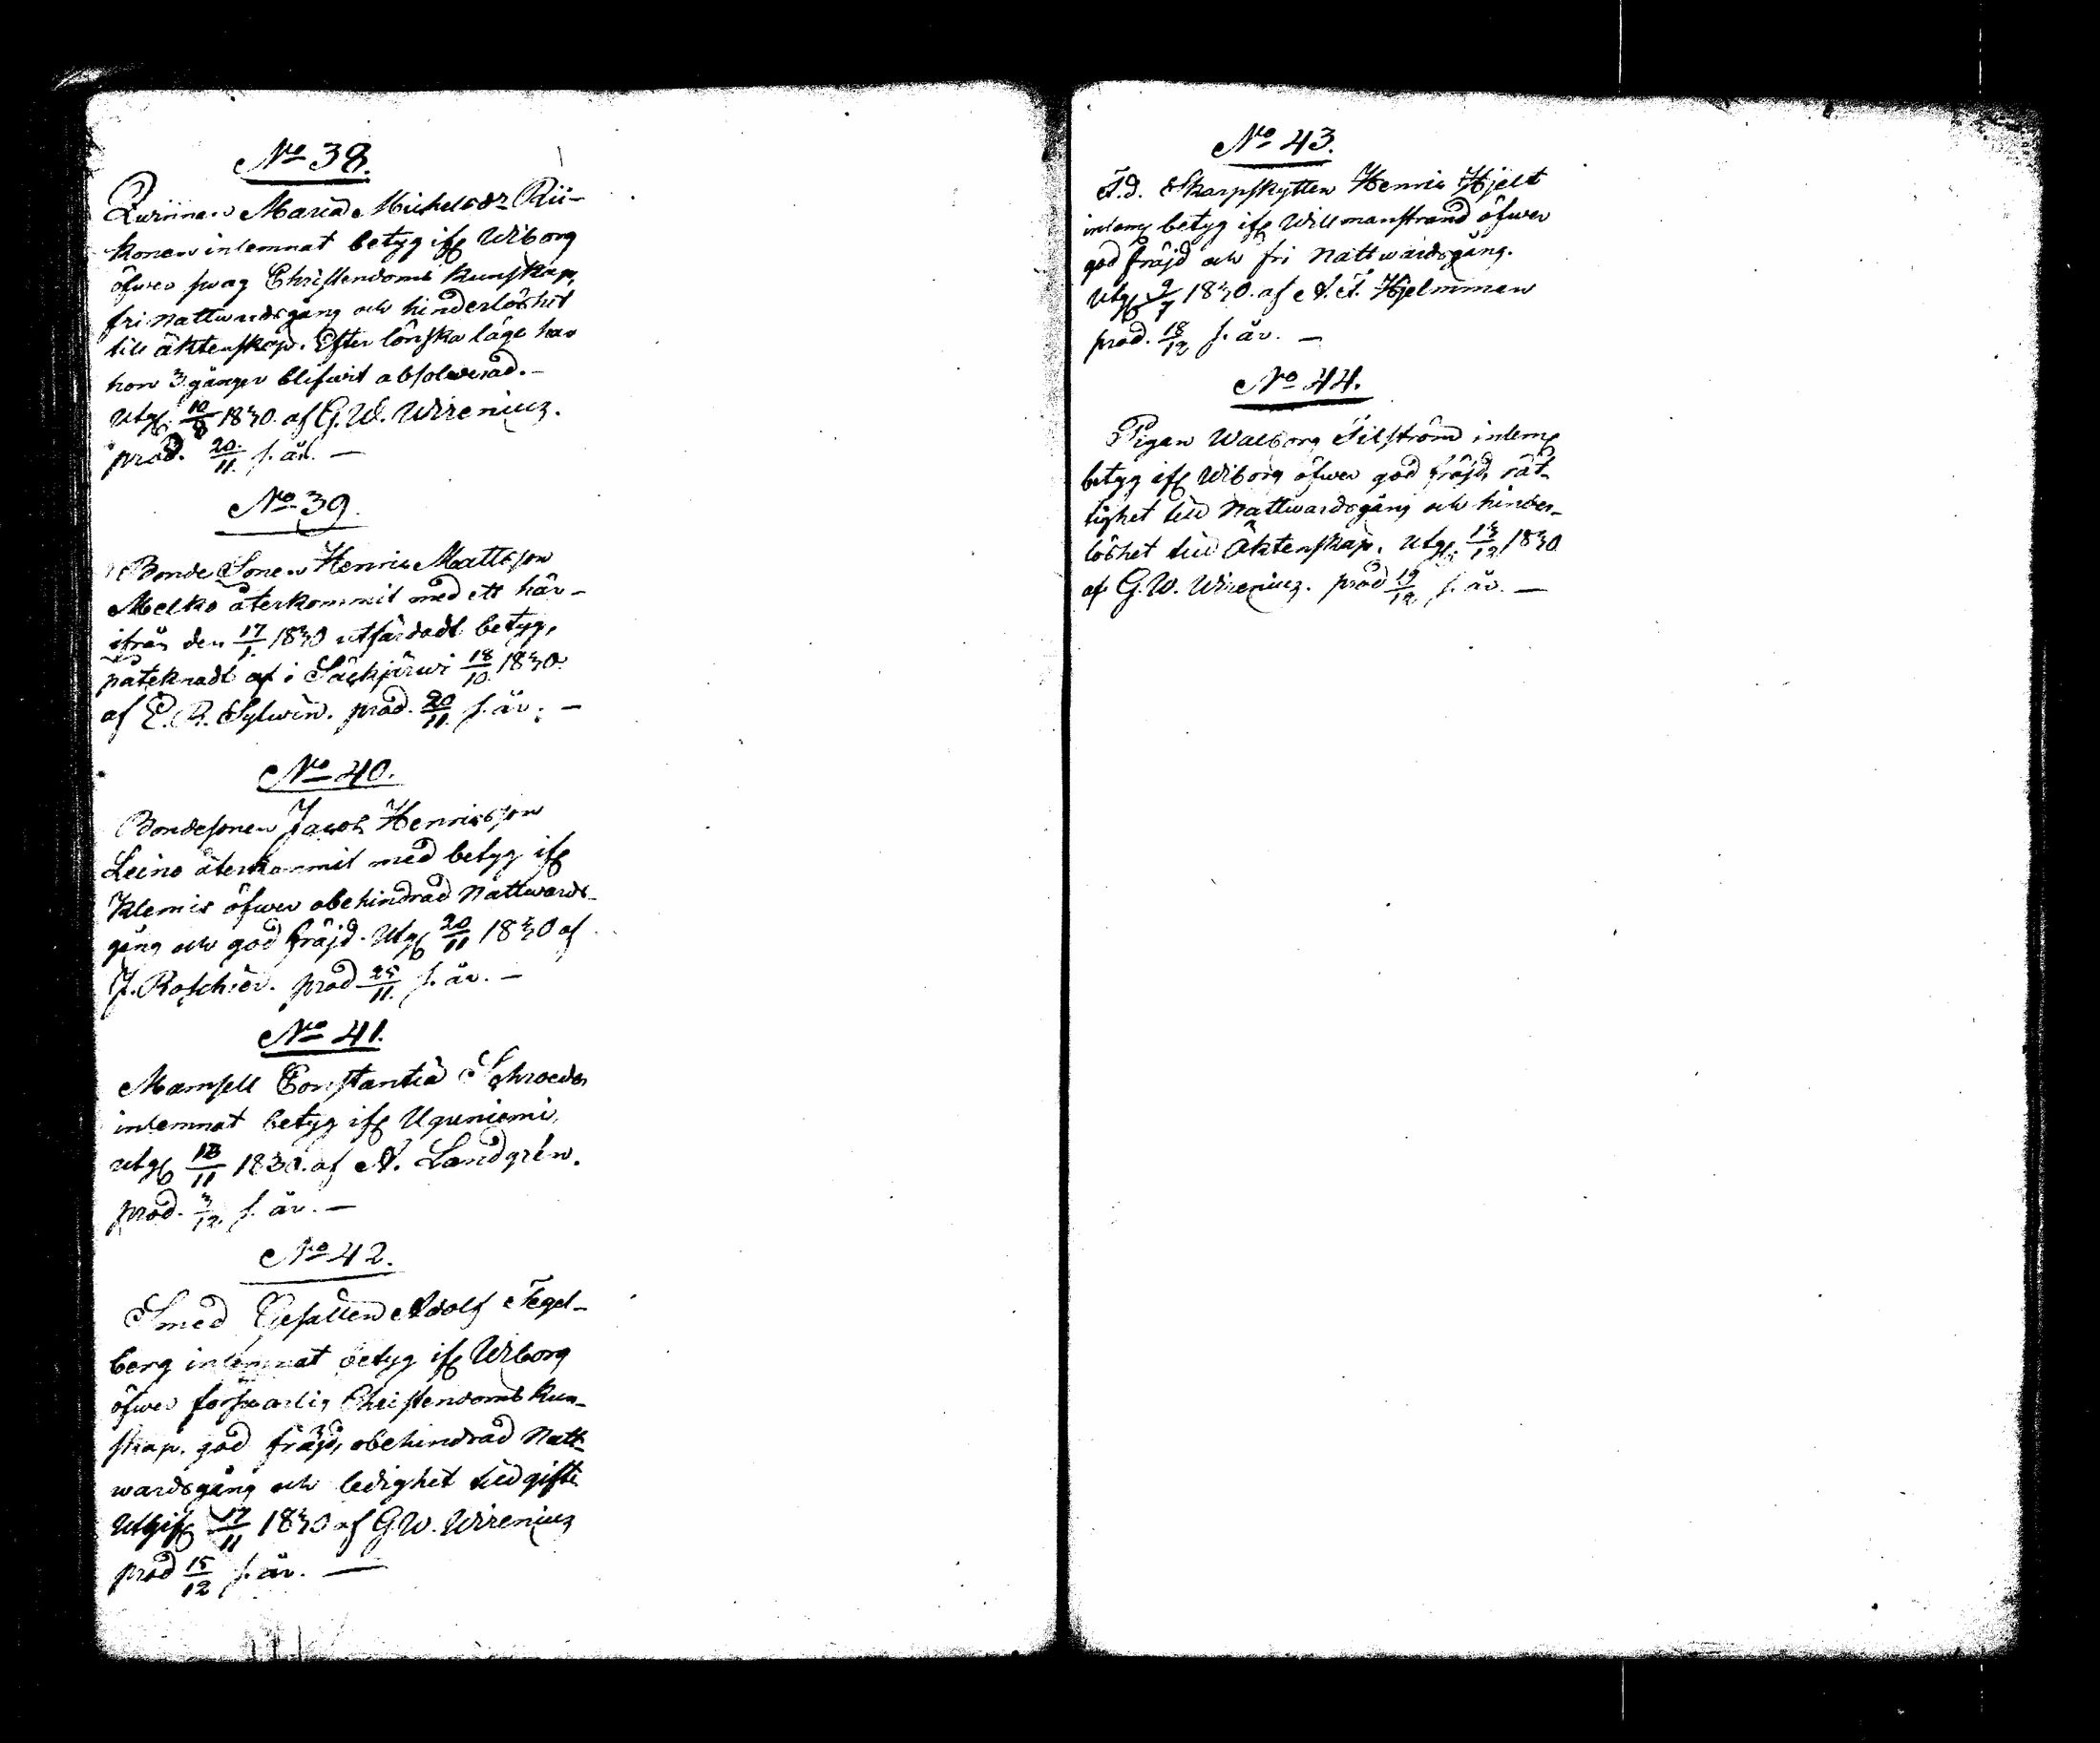 No 38.
Qwinnan Maria Michelsdr Rii-
konen inlemnat betyg ifr Wiborg
öfwer swag Christendoms kunskap,
fri Nattwardsgång och hinderlöshet
till äktenskap. Efter lönska läge har
hon 3 gånger blifwit absolverad. —
Utgf. 10/8 1830. af G. W. Wirenius.
prod. 20/11. s. år. —
No 39.
Bonde Sonen Henric Mattsson
Melko återkommit med ett här-
ifrån den 17/1. 1830 utfärdadt betyg,
påteknadt af i Säckjärwi 18/10. 1830.
af E. R. Sylwin. prod. 20/11. s. år. —
No 40.
Bondesonen Jacob Henricsson
Leino återkommit med betyg ifr
Klemis öfwer obehindrad Nattwards-
gång och god fräjd. Utgf 20/11 1830 af
J. Roschier. prod 25/11. s. år. —
No 41.
Mamsell Constantia Schroeder
inlemnat betyg ifr Uguniemi,
utgf 13/11 1830. af A. Landgrén.
prod. 3/12. s. år. —
No 42.
Smed Gesällen Adolf Tegel-
berg inlemnat betyg ifr Wiborg
öfwer förswarlig Christendoms kun-
skap, god fräjd, obehindrad Natt-
wardsgång och ledighet till gifte
Utgif 17/11 1830 af G W. Wirenius
prod 15/12 s. år. —
No 43.
F.d. Skarpskytten Henric Hjelt
inlemn betyg ifr Willmanstrand öfwer
god fräjd och fri Nattwardsgång.
Utgf 9/7 1830. af A. F. Hjelmman
prod. 18/12 s. år. —
No 44.
Pigan Walborg Silström inlemn
betyg ifr Wiborg öfwer god fräjd, rät-
tighet till Nattwardsgång och hinder-
löshet till Äktenskap. Utgf. 13/12 1830
af G. W. Wirenius. prod 19/12 s. år. —